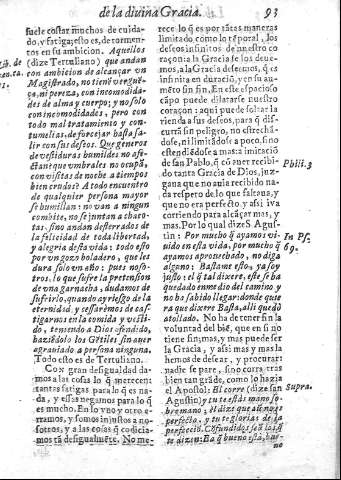 de la divina Gracia. 93
suele costar muchos de cuida-
do, y fatiga; esto es, de tormen-
tos en su ambicion. Aquellos
(dize Tertuliano) que andan
con ambicion de alcançar un
Magistrado, no tienen verguē-
ça, ni pereza, con incomodida-
des de alma y cuerpo; y no solo
con incomodidades, pero con
todo mal tratamiento y con-
tumelias, de forcejar hasta sa-
lir con sus deseos. Que generos
de vestiduras humildes no afe-
ctanē que umbrales no ocupā,
con visitas de noche a tiempos
bien crudos? A todo encuentro
de qualquier persona mayor
se humillan: no van a ningun
combite, no se juntan a chaco-
tas, sino andan desterrados de
la felicidad de toda libertad,
y alegria desta vida: todo esto
por un gozo boladero, que les
dura solo un año: pues noso-
tros, lo que sufre la pretension
de una garnacha, dudamos de
sufrirlo, quando ay riesgo de la
eternidad y cessarèmos de cas-
tigarnos en la comida y vesti-
do, teniendo a Dios ofendido,
haziēdolo los Gētiles sin aver
agraviado a persona ninguna.
Todo esto es de Tertuliano.
Con gran desigualdad da-
mos a las cosas lo q̄ merecen:
tantas fatigas para lo q̄ es na-
da, y essas negamos para lo q̄
es mucho. En lo uno y otro e-
rramos, y somos injustos a no-
sotros, y a las cosas q̄ codicia-
mos tā desigualmēte. No me-
rece lo q̄ es por tātas maneras
limitado como lo tēporal, los
deseos infinitos de nuestro co-
raçon: a la Gracia se los deue-
mos, a la Gracia desemos, q̄ es
infinita en duraciō, y en su au-
mēto sin fin. En este espacioso
cāpo puede dilatarse nuestro
coraçon: aqui puede soltar la
rienda a sus deseos, para q̄ dis-
curra sin peligro, no estrechā-
dose, ni limitādose a poco, sino
estendiēdose a mas: a imitaciō
de san Pablo, q̄ cō auer recibi-
do tanta Gracia de Dios, juz-
gana que no auia recibido na-
da respeto de lo que faltaua, y
que no era perfecto, y assi iva
corriendo para alcāçar mas, y
mas. Por lo qual dize S. Agus-
tin: Por mucho q̄ ayamos vi-
uido en esta vida, por mucho q̄
ayamos aprouechado, no diga
alguno: Bastame esto, ya soy
justo: el q̄ tal dixere, esse se ha
quedado en medio del camino, y
no ha sabido llegar: donde quie-
ra que dixere Basta, alli quedò
atollado. No ha de tener fin la
voluntad del biē, que en si no
tiene fin; mas, y mas puede ser
la Gracia, y assi mas y mas la
hemos de desear, y procurar:
nadie se pare, sino corra tras
bien tan grāde, como lo hazia
el Apostol: El corre (dize san
Agustin) y tu te estàs mano so-
bre mano; èl dize que aun no es
perfecto, y tu te glorias de la
perfeccion. Cōfundidos seā los q̄
te dizen: Ea q̄ bueno està, bue-
no
Phili. 3
In Ps.
69.
Supra.